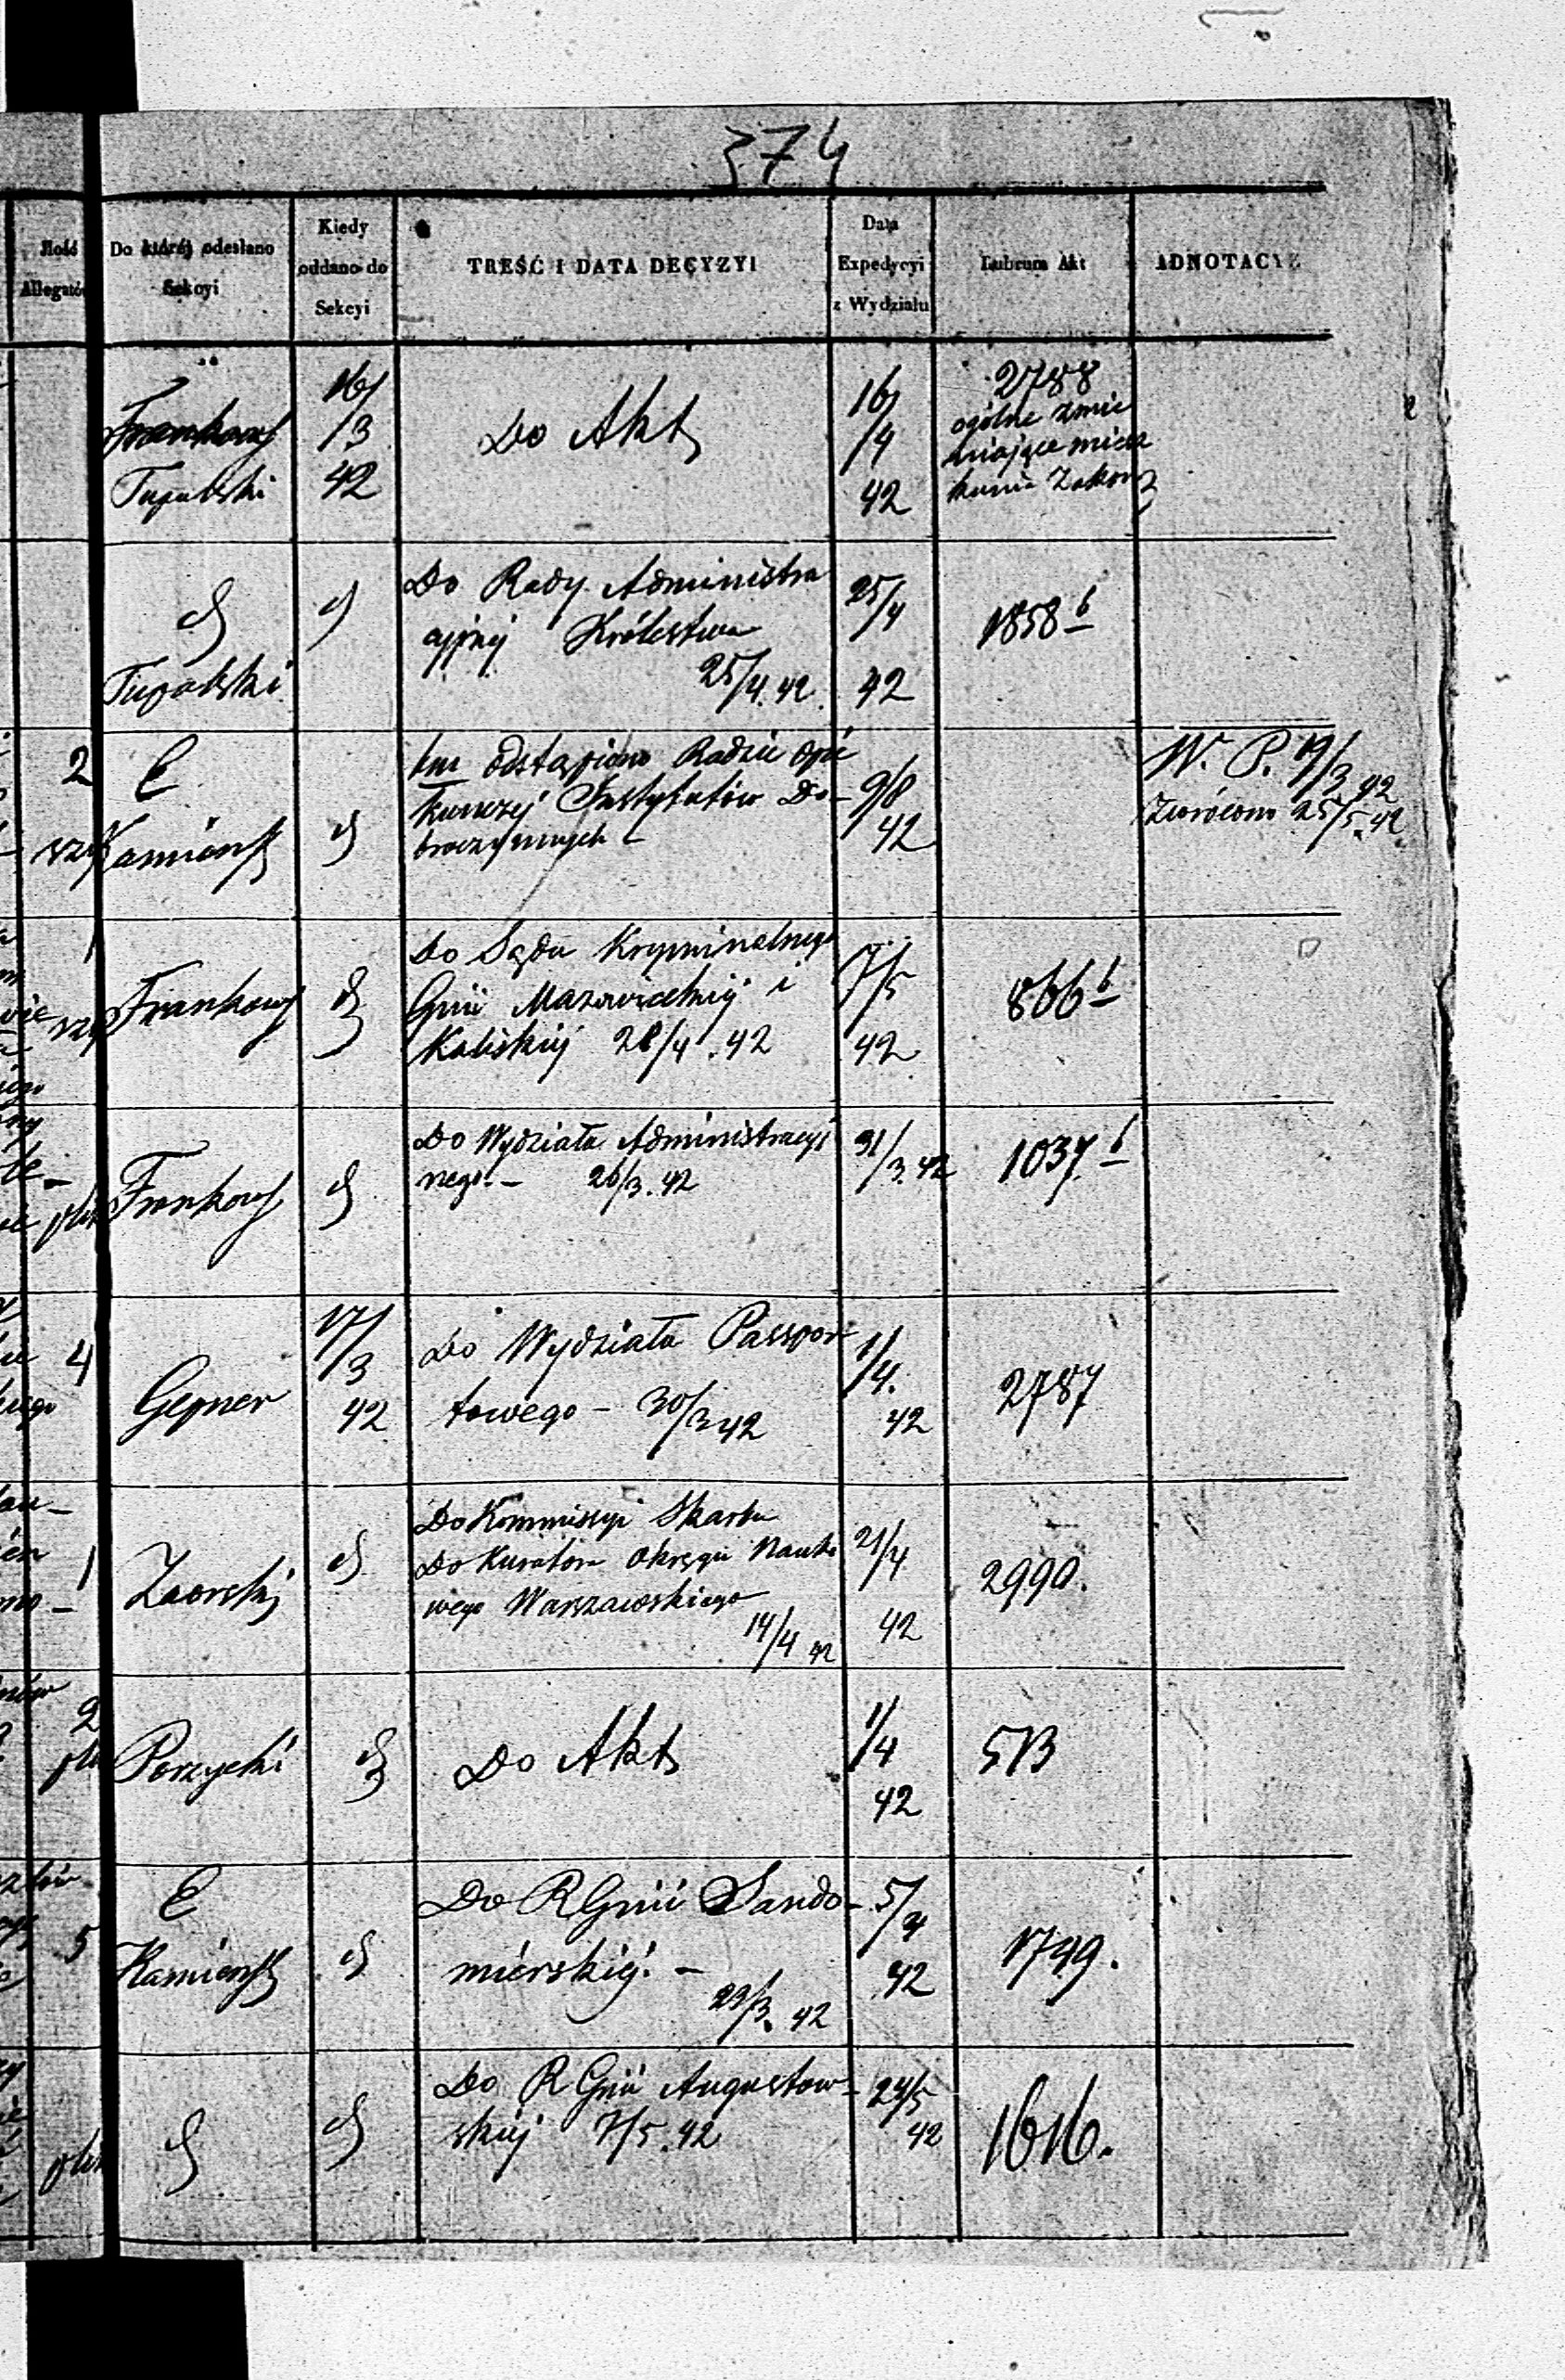 374
Ilość Allegatów
Do której odesłano Sekcyi
Kiedy oddano do Sekcyi
TREŚĆ I DATA DECYZYI
Data Expedycyi z Wydziału
Lubrum Akt
ADNOTACYE
Frankows
Tupalski
16/3 42
Do Akt
16/4 42
2788
ogólne zmie
niające miesz
kania Zakon
Tupalski
Do Rady Administra
cyjnej Królestwa
25/4. 42.
25/4 42
1858 b
2
E
Kamiońs
odstąpiono Radzie Opie
kuńczej Instytutów Do-
broczynnych -
9/8 42
W. P. 19/3 42
Zwrócono 25/5. 42.
Frankows
Do Sądu Kryminalnego
Gnii Mazowieckiej i
Kaliskiej 28/4. 42
7/5 42
866 b
Frankows
Do Wydziału Administracyj
nego. - 26/3. 42
31/3. 42
1037. b
4
Gepner
17/3 42
Do Wydziału Passpor
towego - 30/3 42
1/4. 42
2787
1
Zaorski
Do Kommissyi Skarbu
Do Kuratora Okręgu Nauko
wego Warszawskiego
14/4 42
21/4 42
2990.
2
Porzycki
Do Akt
1/4 42
513
5
E
Kamiońs
Do R Gnii Sando-
mierskiej. -
23/3. 42
5/4 42
1749.
Do R Gnii Augustow-
skiej 7/5. 42
24/5 42
1616.